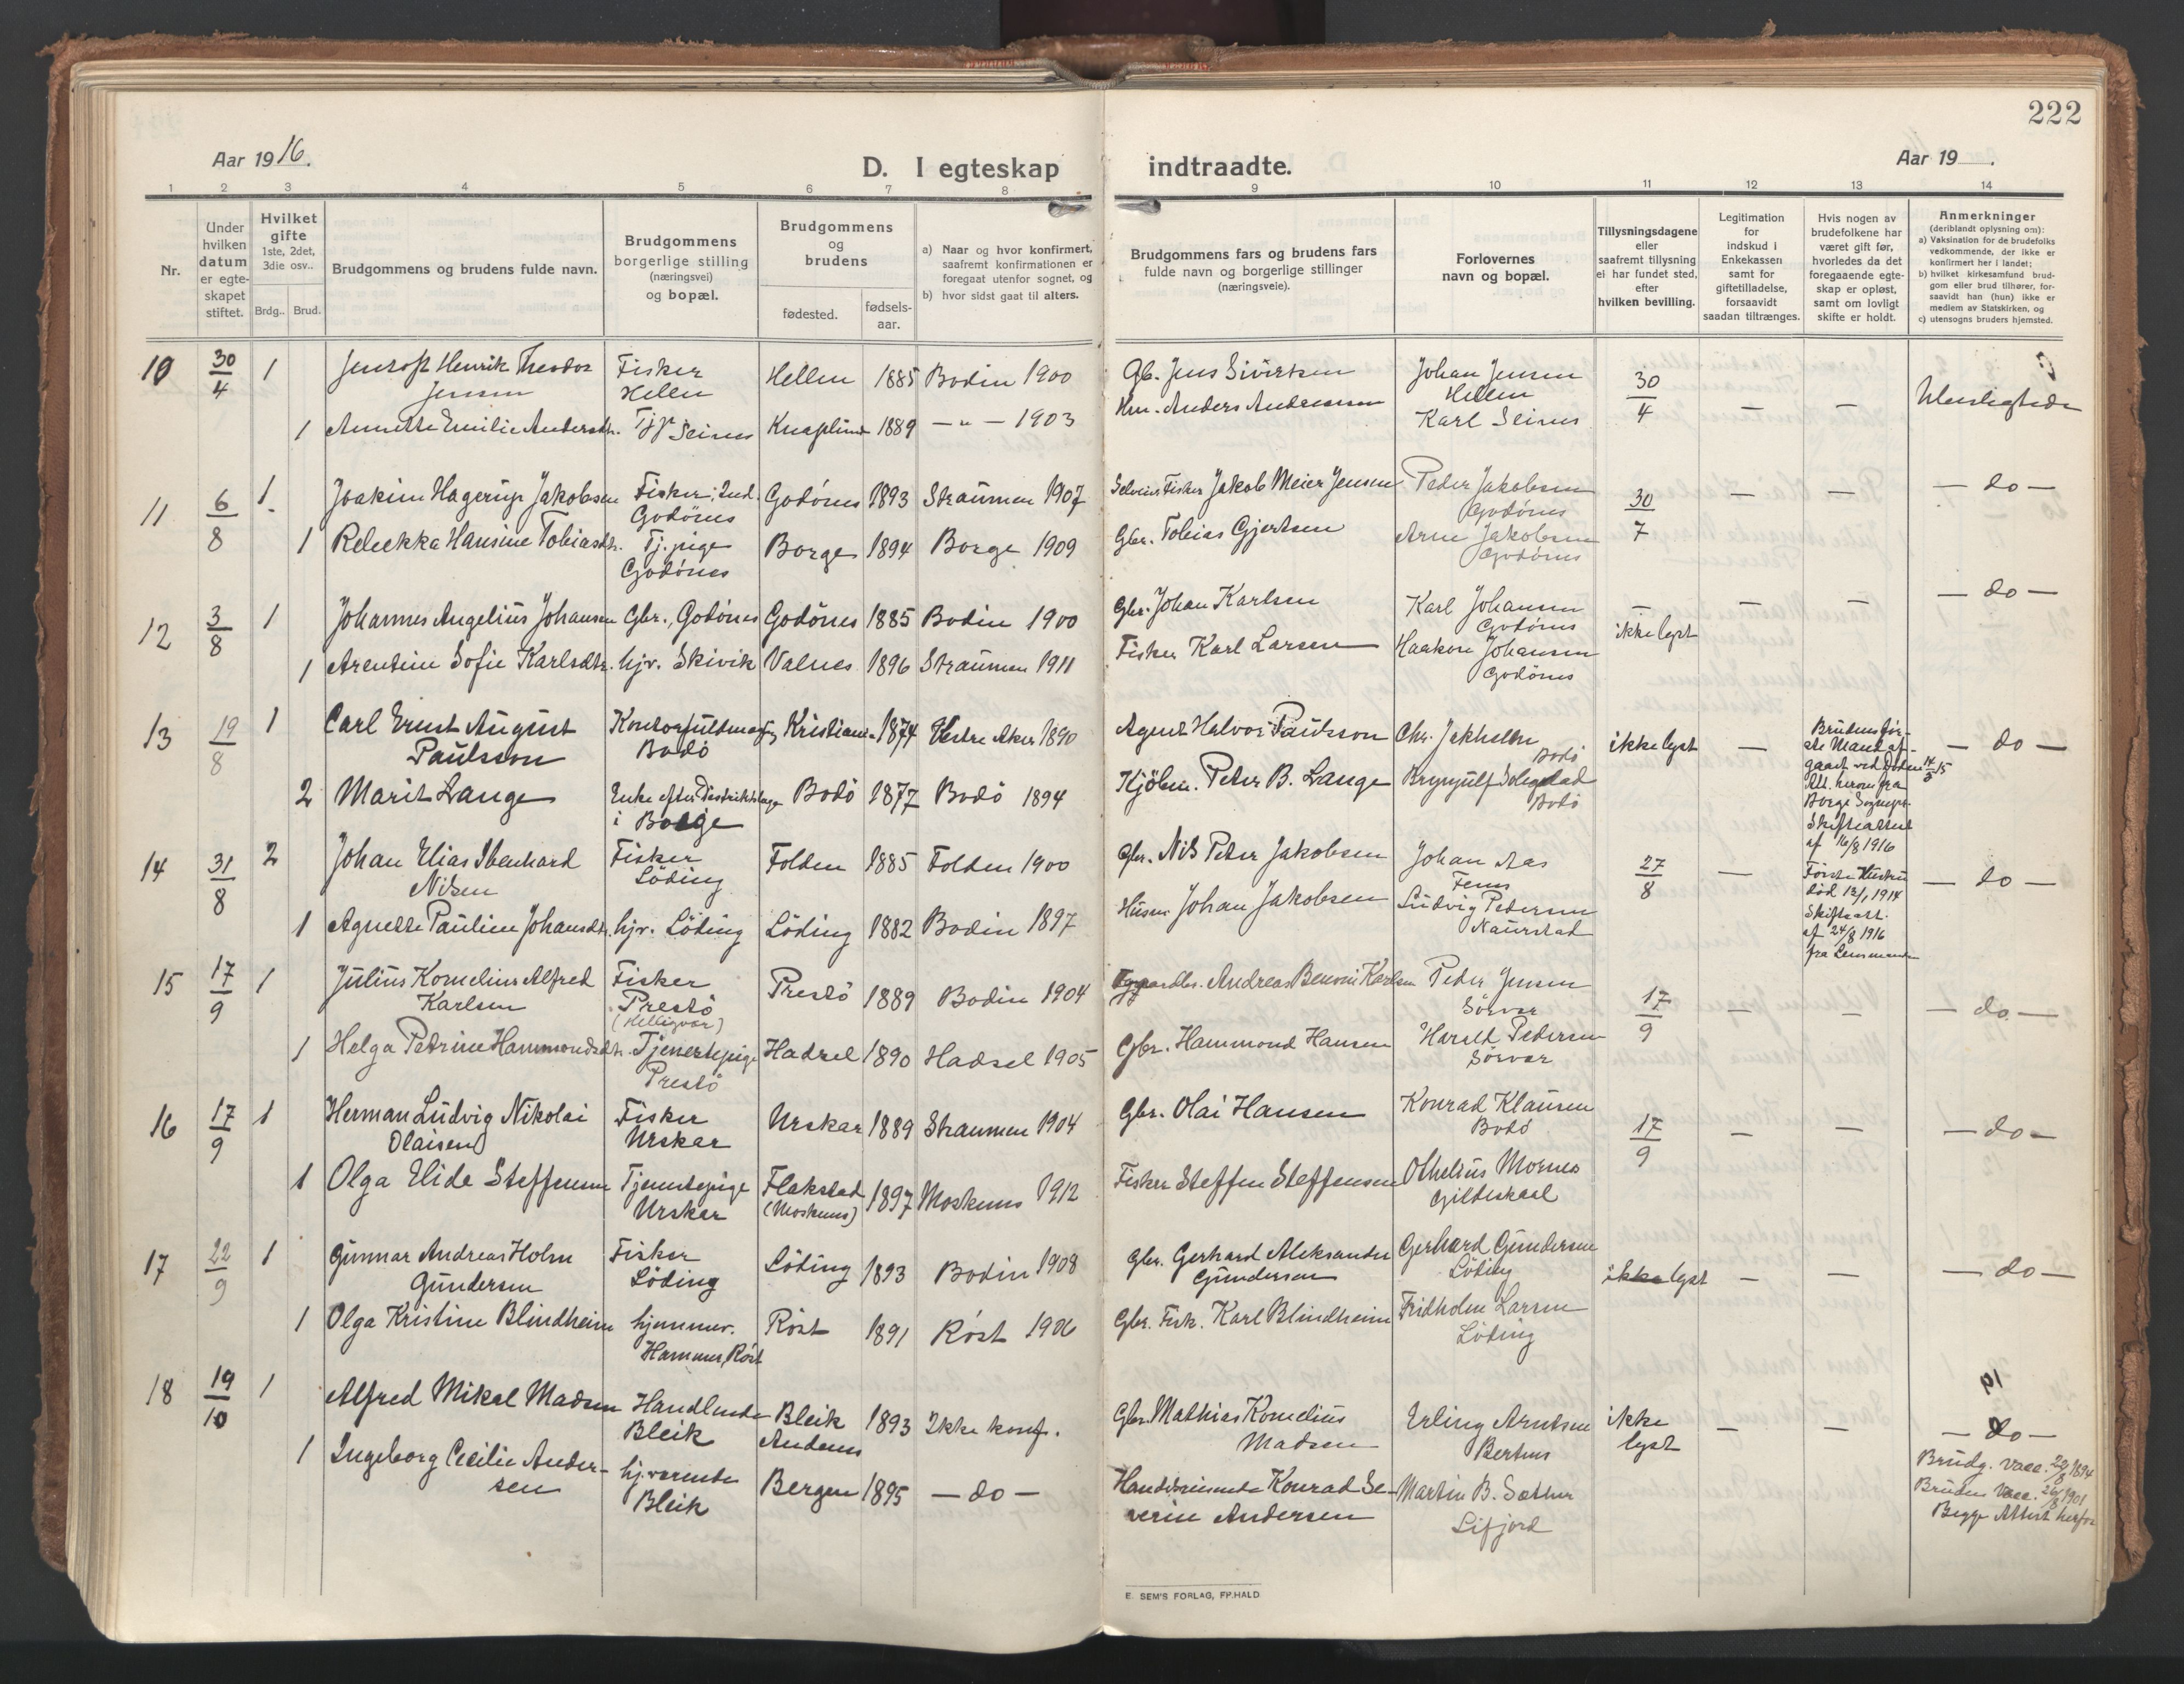 222
Aar 1916.
D. I egteskap indtraadte.
Aar 19 .
1 2 3 4 5 6 7 8 9 10 11 12 13 14
Nr.
Under hvilken datum er egteskapet stiftet.
Hvilket gifte 1ste, 2det, 3die osv..
Brdg.. Brud.
Brudgommens og brudens fulde navn.
Brudgommens borgerlige stilling (næringsvei) og bopæl.
Brudgommens og brudens
fødested.
fødsels-aar.
a) Naar og hvor konfirmert, saafremt konfirmationen er foregaat utenfor sognet, og
b) hvor sidst gaat til alters.
Brudgommens fars og brudens fars fulde navn og borgerlige stillinger (næringsveie).
Forlovernes navn og bopæl.
Tillysningsdagene eller saafremt tillysning ei har fundet sted, efter hvilken bevilling.
Legitimation for indskud i Enkekassen samt for giftetilladelse, forsaavidt saadan tiltrænges.
Hvis nogen av brudefolkene har været gift før, hvorledes da det foregaaende egteskap er opløst, samt om lovligt skifte er holdt.
Anmerkninger (deriblandt oplysning om):
a) Vaksination for de brudefolks vedkommende, der ikke er konfirmert her i landet;
b) hvilket kirkesamfund brudgom eller brud tilhører, forsaavidt han (hun) ikke er medlem av Statskirken, og
c) utensogns bruders hjemsted.
10 30/4 1 Jentoft Henrik Theodor Jensen Fisker Hellen Hellen 1885 Bodin 1900 Gb. Jens Sivertsen Johan Jensen Hellen 30/4 — —
1 Annette Emilie Andersdtr. Tjp Seines Knaplund 1889 — " — 1903 Hm. Anders Andreassen Karl Seines
11 6/8 1 Joakim Hagerup Jakobsen Fisker, Ind. Godönes Godönes 1893 Straumen 1907 Selveier Fisker Jakob Meier Jensen Peder Jakobsen Godönes 30/7 — — — do —
1 Rebekka Hansine Tobiasdtr. Tj. pige Godönes Borge 1894 Borge 1909 Gbr. Tobias Gjertsen Arne Jakobsen Godönes
12 3/8 1 Johannes Angelius Johansen Gbr., Godönes Godönes 1885 Bodin 1900 Gbr. Johan Karlsen Karl Johansen Godönes — ikke lyst — — — do —
1 Arentine Sofie Karlsdtr. hjv. Skivik Valnes 1896 Straumen 1911 Fisker Karl Larsen Haakon Johansen Godönes
13 19/8 1 Carl Ernst August Paulsson Kontorfuldmægtig Bodö Kristiania 1874 Vestre Aker 1890 Agent Halvor Paulsson Chr. Jakhelln Bodö ikke lyst — — do —
Brudens første Mand afgaaet ved Döden 14/3 15 Att. herom fra Borge Sognepr. Skifteattest af 16/8 1916
2 Marit Lange Enke efter Distriktslæge i Borge Bodö 1877 Bodö 1894 Kjöbm. Peter B. Lange Brynjulf Bodö
14 31/8 2 Johan Elias Ibenhard Nilsen Fisker Löding Folden 1885 Folden 1900 Gbr. Nils Peter Jakobsen Johan Aas 27/8 — — do —
Første Hustru död 12/1 1914 Skifteatt. af 24/8 1916 fra Lensmanden
1 Agnette Pauline Johansdtr. hjv. Löding Löding 1882 Bodin 1897 Husm. Johan Jakobsen Ludvig Pedersen Naurstad
15 17/9 1 Julius Kornelius Alfred Karlsen Fisker Prestö (Helligvær) Prestö 1889 Bodin 1904 Andreas Benoni Karlsen Peder Jensen Sörvær 17/9 — — — do —
1 Helga Petrine Hammondsdtr. Tjenestepige Prestö Hadsel 1890 Hadsel 1905 Gbr. Hammond Hansen Harald Pedersen Sörvær
16 17/9 1 Herman Ludvig Nikolai Olaisen Fisker Urskar Urskar 1889 Straumen 1904 Gbr. Olai Hansen Konrad Klausen Bodö 17/9 — — — do —
1 Olga Elide Steffensen Tjenestepige Urskar Flakstad (Moskenes) 1897 Moskenes 1912 Fisker Steffen Steffensen Othelius Mornes Gildeskaal
17 22/9 1 Gunnar Andreas Holm Gundersen Fisker Löding Löding 1893 Bodin 1908 Gbr. Gerhard Aleksander Gundersen Gerhard Gundersen Löding ikke lyst — — — do —
1 Olga Kristine Blindheim hjemmev. Hammer, Röst Röst 1891 Röst 1906 Gbr. Fisk. Karl Blindheim Fridholm Larsen Löding
18 19/10 1 Alfred Mikal Madsen Handlende Bleik Bleik Andenes 1893 Ikke konf. Gbr. Mathias Kornelius Madsen Erling Arntsen Bertnes ikke lyst — — — do —
1 Ingeborg Cecilie Andersen hj.værende Bleik Bergen 1895 — do — Konrad Severin Andersen Martin B. Sæther Lifjord
Brudg. vacc. 1894 Bruden Vacc. 26/8 1901 Begge Attest herfor
E. SEM'S FORLAG, FR.HALD